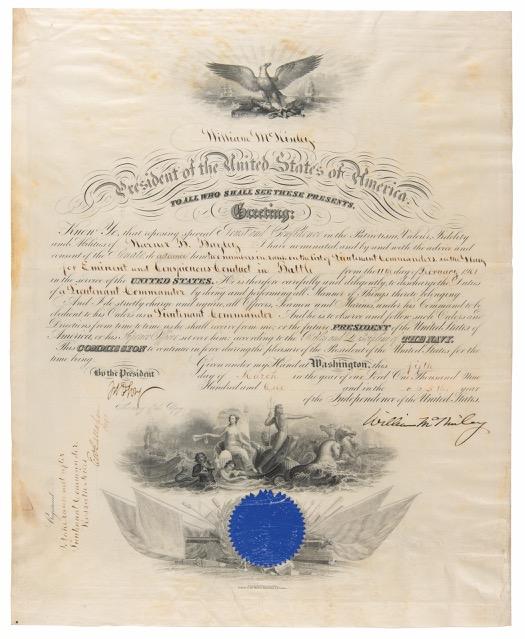 William McKinley
President of the United States of America.
TO ALL WHO SHALL SEE THESE PRESENTS,
Greeting:
Know Ye, that reposing special Trust and Confidence in the Patriotism, Valour, Fidelity
and Abilities of I have nominated and by and with the advice
and consent of the Senate do numbers in rank on the list of Lieutenant Commanders in the Navy
for Eminent and Conspicuous Conduct in Battle from the 11th day of February 1901
in the service of the UNITED STATES. He is therefore carefully and diligently to discharge the Duties
of a Lieutenant Commander by doing and performing all Manner of Things thereto belonging
And I do strictly charge and require all Officers, Seamen and Marines, under his Command to be
obedient to his Orders as a Lieutenant Commander And he is to observe and follow such Orders and
Directions from time to time as he shall receive from me, or the future PRESIDENT of the United States of
America, or his Superior Officer set over him, according to the Rules and Discipline of THE NAVY.
This COMMISSION to continue in force during the pleasure of the President of the United States for the
time being.
Given under my Hand at Washington, this
day of March in the year of our Lord One Thousand Nine
Hundred and One and in the 125th year
of the Independence of the United States.
By the President
William McKinley
Secretary of the Navy
Registered
Lieutenant Commander